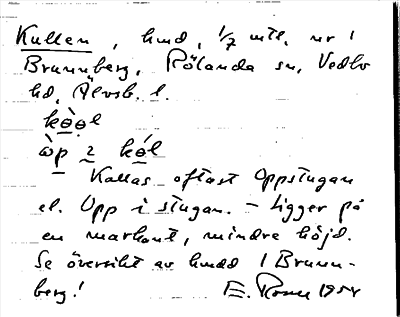 Kullen, hmd, 1/7 mtl, nr 1
Brunnberg, Rölanda sn, Vedbo
hd, Älvsb. l.
kɵ̀ɵl
ɷ̀p 2 kɵ́l
Kallas oftast Oppstugan
el. Upp i stugan. – Ligger på
en markant, mindre höjd.
Se översikt av hmdd i Brunn-
berg!
1954